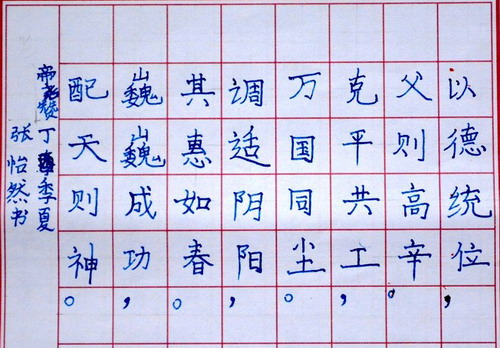 以德统位，
父则高辛。
克平共工，
万国同尘。
调适阴阳，
其惠如春。
巍巍成功，
配天则神。
帝尧赞丁酉季夏
张怡然书